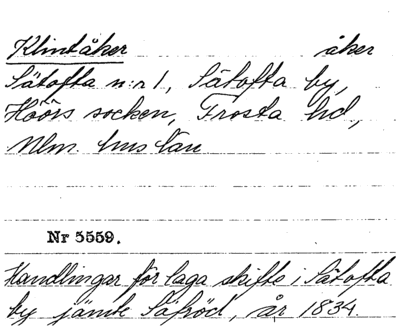 Klintåker åker
Sätofta n:r 1, Sätofta by,
Höörs socken, Frosta hd,
Mlm hus län
Nr 5559.
Handlingar för laga skifte i Sätofta
by jämte Säfröd, år 1834.